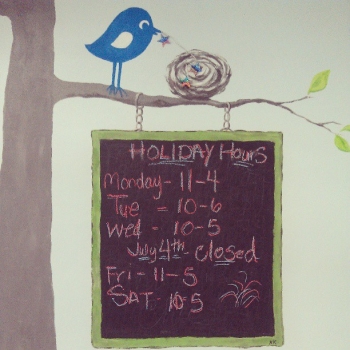 HOLIDAY HOURS
Monday - 11-4
Tue = 10-6
Wed - 10-5
July 4th closed
Fri - 11-5
SAT - 10-5